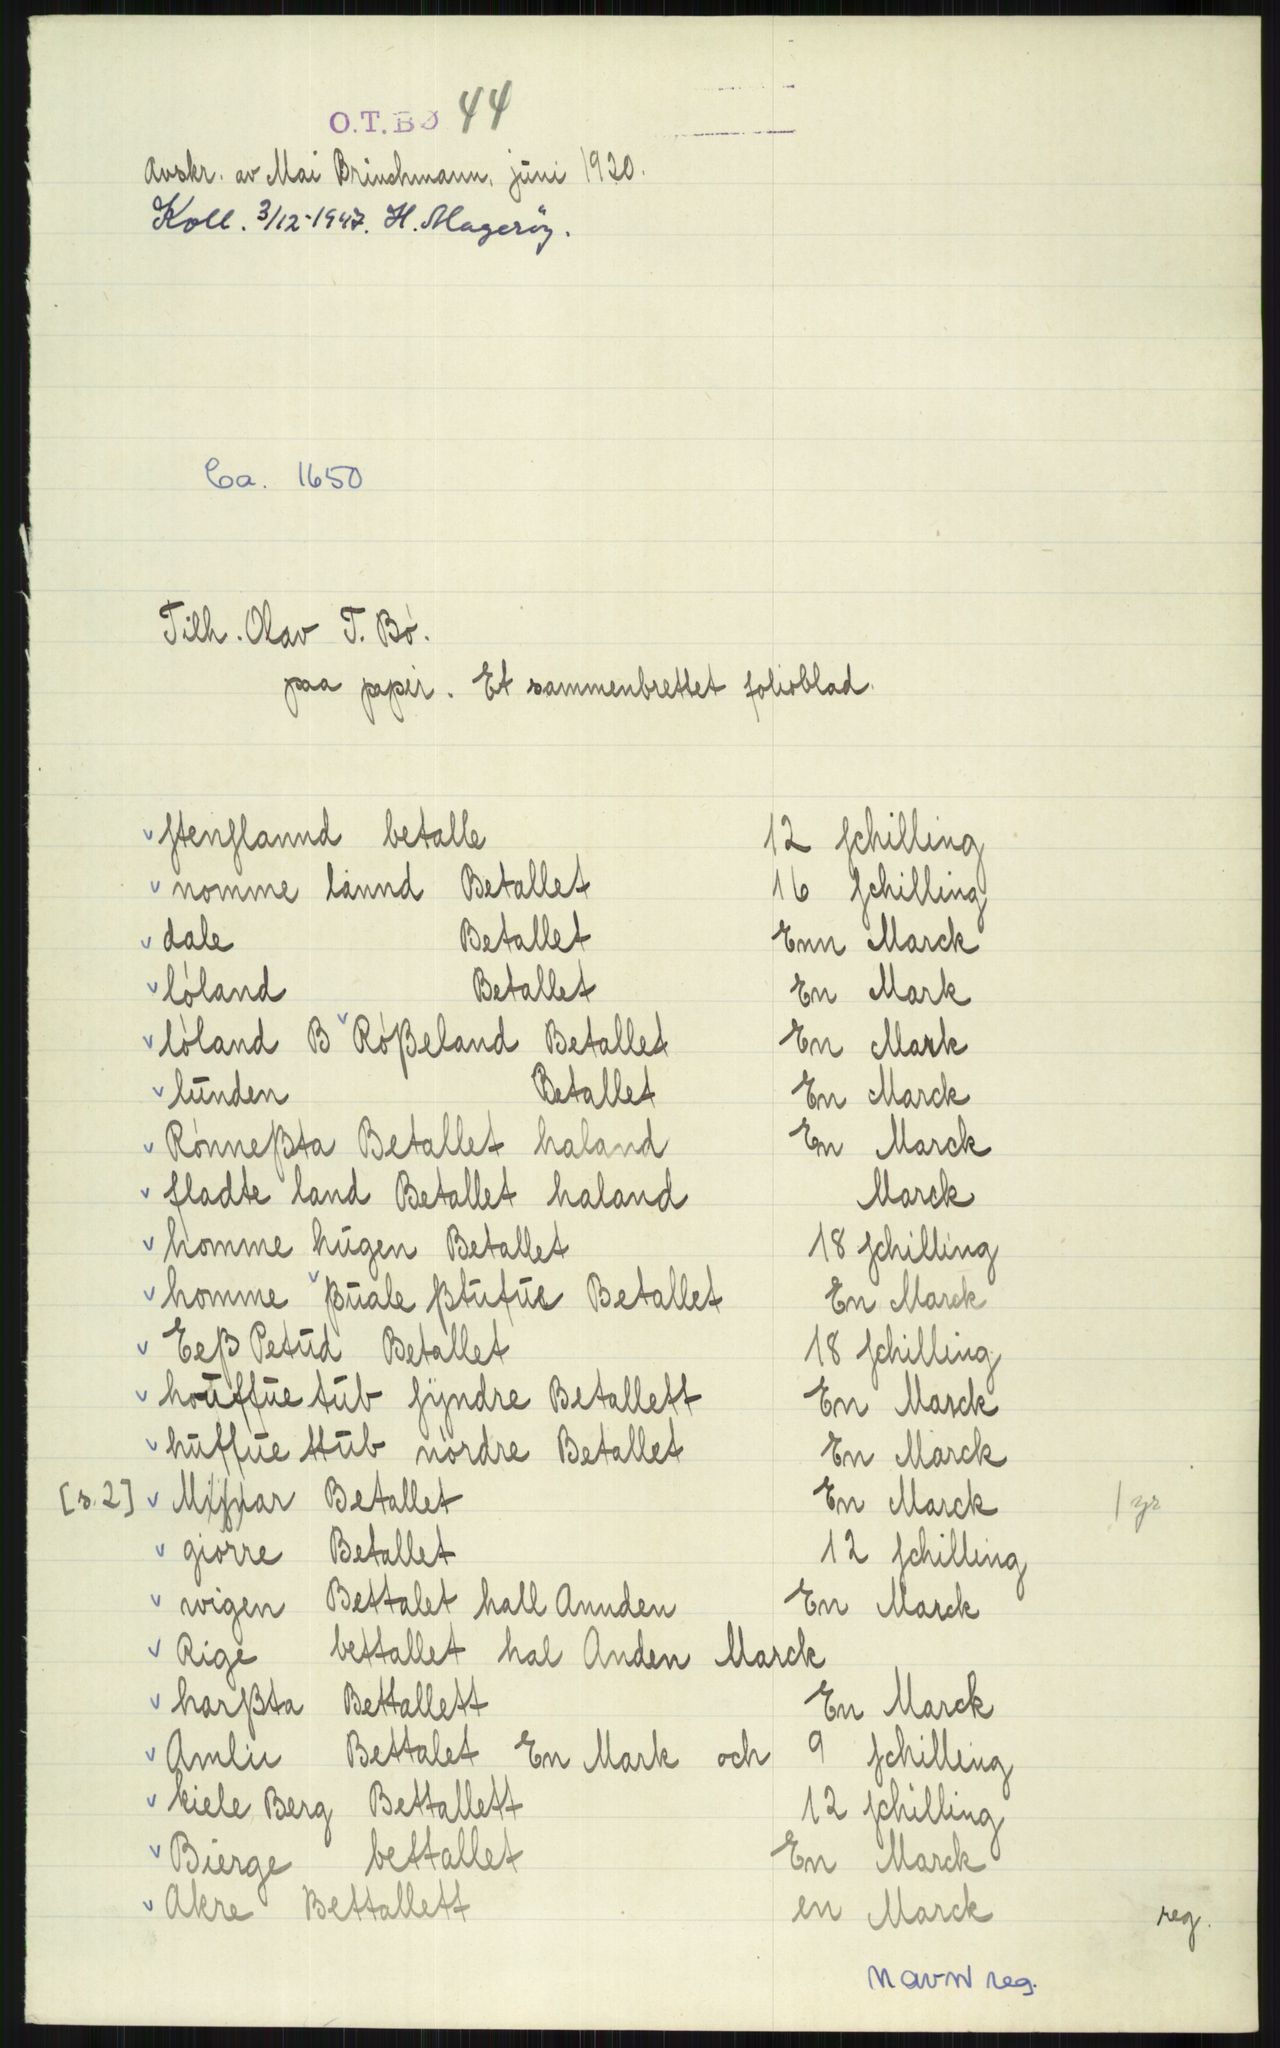 O.T.BØ 44
Avskr. av Mai Brinchmann, juni 1920.
Koll. 3/12-1947. H. Magerøy.
Ca. 1650
Tilh. Olav T. Bø.
paa papir. Et sammenbrettet folioblad.
ſtenſlannd betalle 12 ſchilling
nomme lannd Betallet 16 ſchilling
dale Betallet Enn Marck
løland Betallet En Mark
løland B Røßeland Betallet En Mark
lunden Betallet En Marck
Rønneßta Betallet haland En Marck
fladte land Betallet haland Marck
homme hugen Betallet 18 ſchilling
homme ßuale ßtufue Betallet En Marck
Eeß Petud Betallet 18 ſchilling
houffue tub ſÿndre Betallett En Marck
huffue ttub nordre Betallet En Marck
[s. 2] Betallet En Marck 1 yr
giørre Betallet 12 ſchilling
wigen Bettalet hall Annden En Marck
Rige bettallet hal Anden Marck
harßta Bettallett En Marck
Amlii Bettalet En Mark och 9 ſchilling
kiele Berg Bettallett 12 ſchilling
Bierge bettallet En Marck
Akre Bettallett en Marck reg.
navn reg.